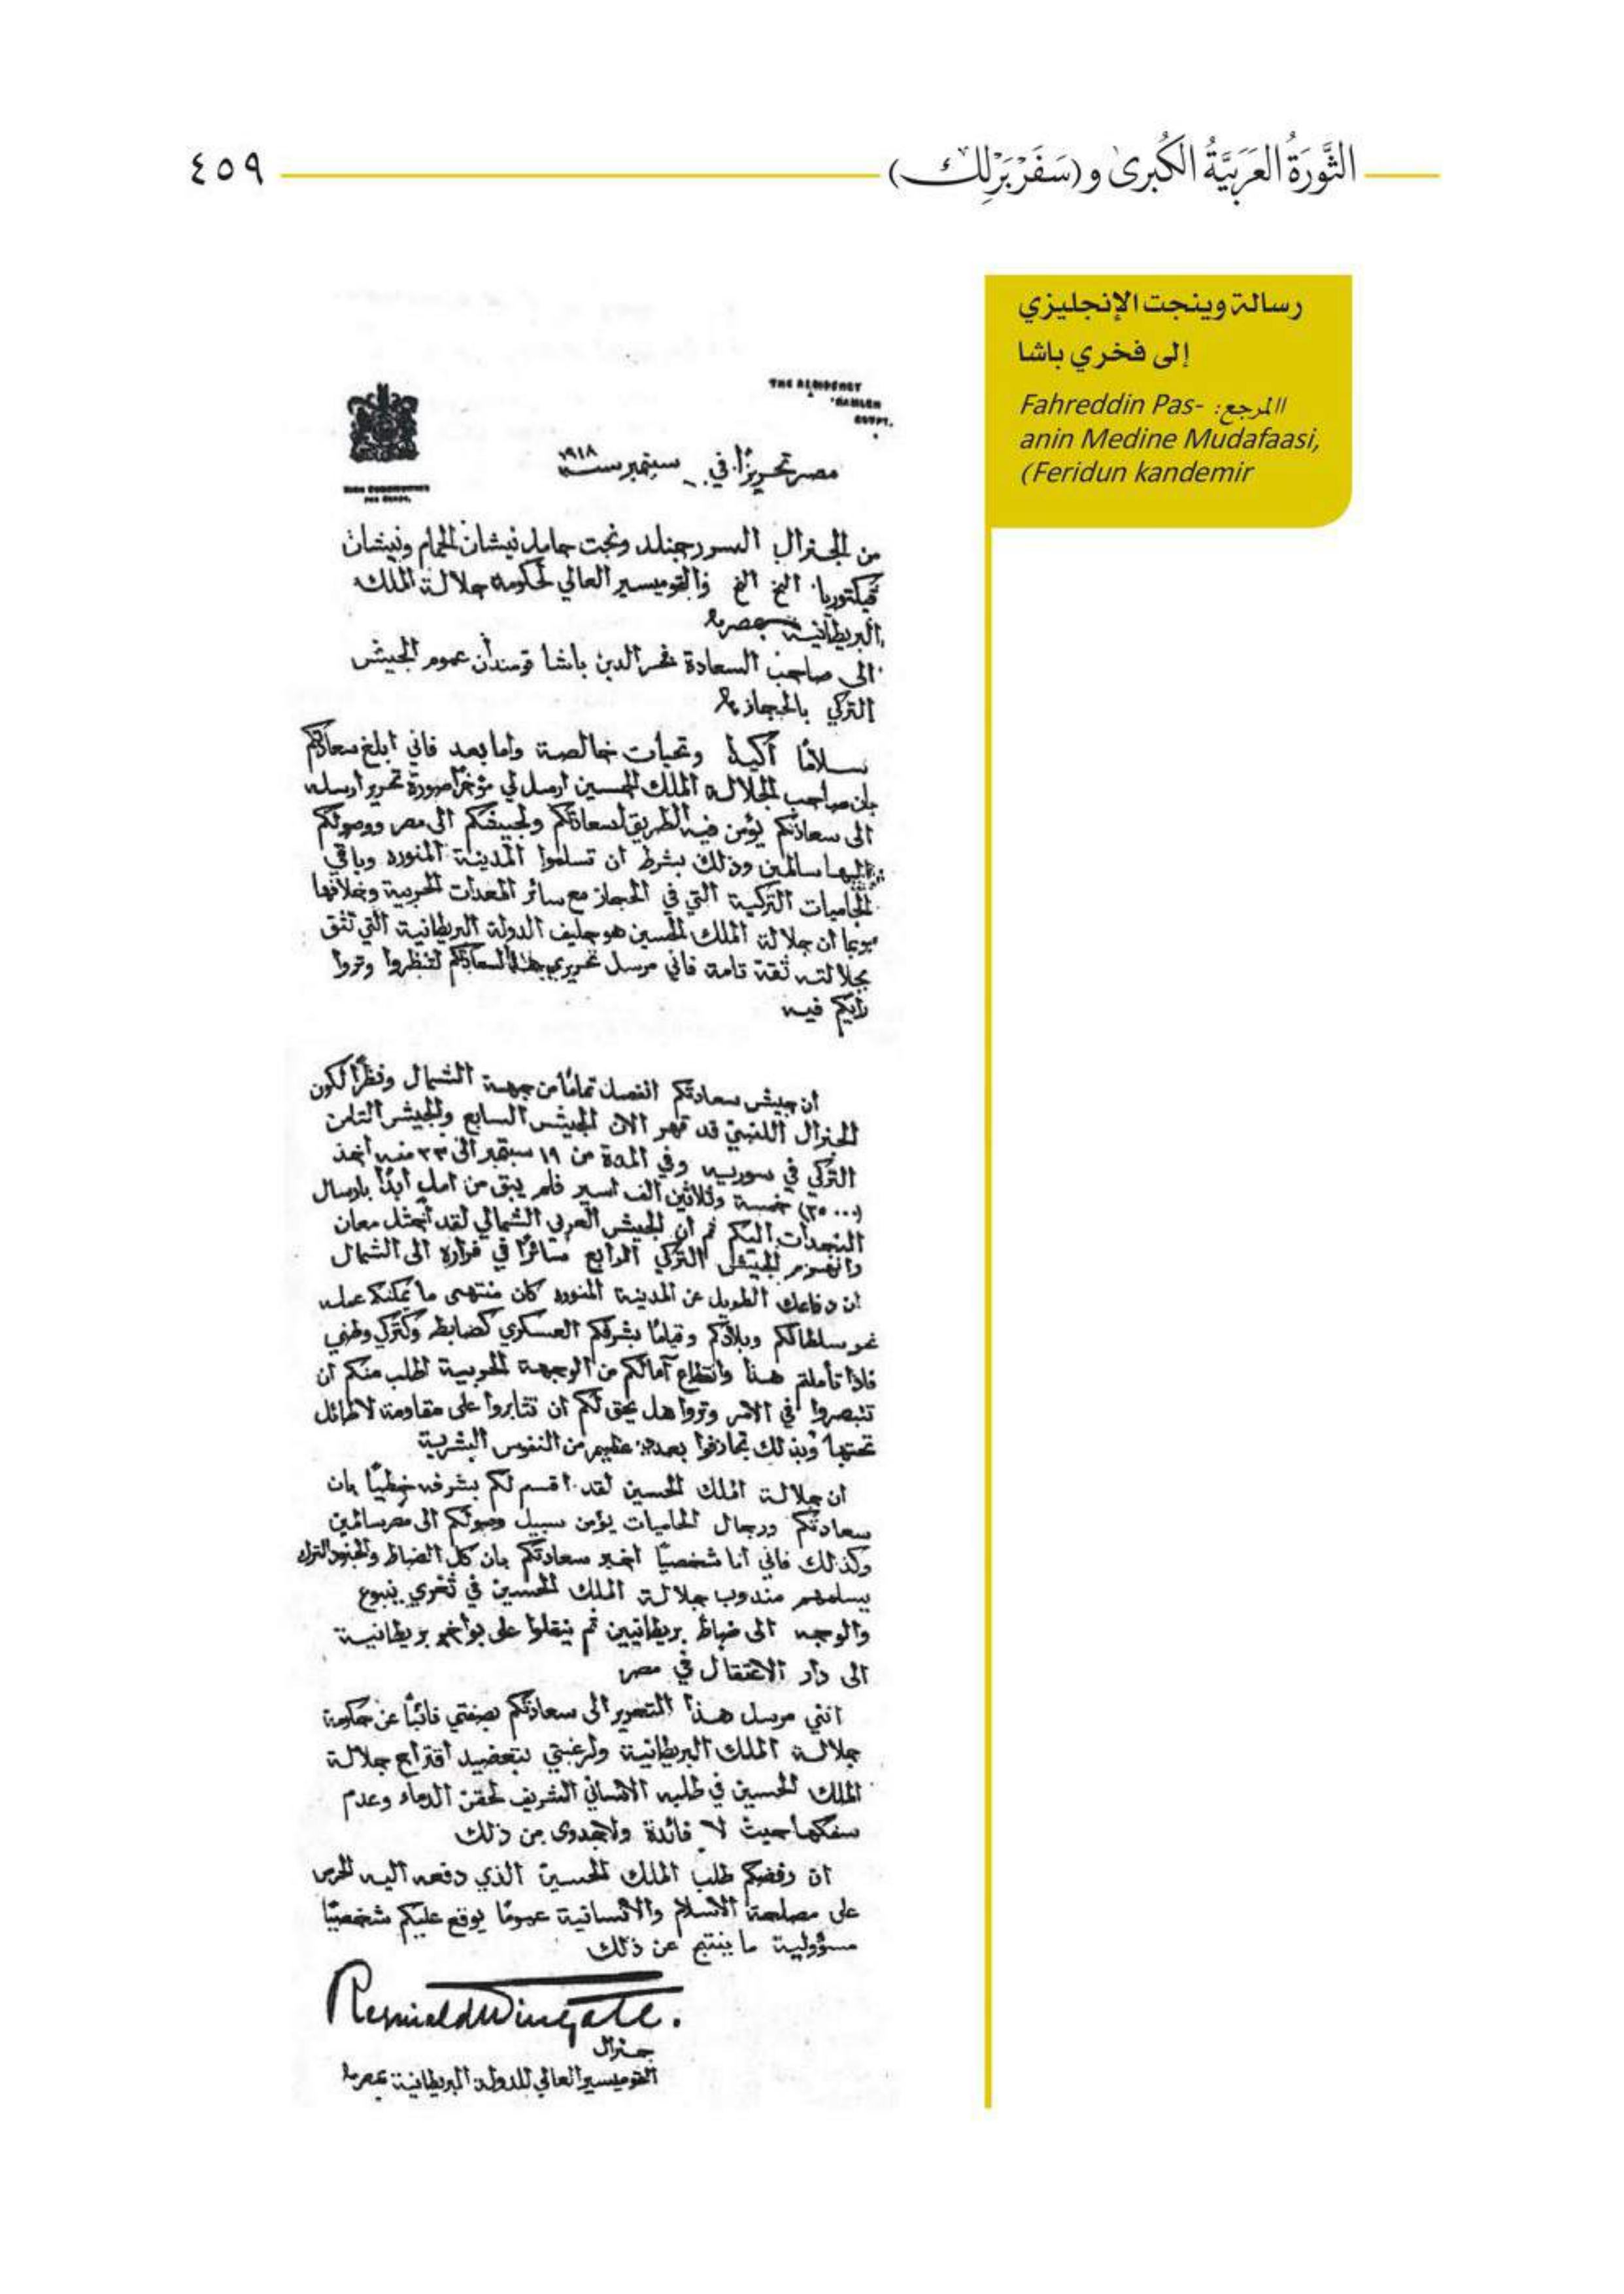 الثَّورَةُ العَرَبيَّةُ الكُبرىٰ و(سَفَرْبَرْلِك)
٤٥٩
رسالة وينجت الإنجليزي
إلى فخري باشا
االمرجع: Fahreddin Pas-
anin Medine Mudafaasi,
(Feridun kandemir
THE RESIDENCY
RAMLEH
EGYPT.
HIGH COMMISSIONER
FOR EGYPT.
مصر تحريرًا في سبتمبر سنة ١٩١٨
من الجنرال السر رجنلد ونجت حامل نيشان الحمام ونيشان
فيكتوريا الخ الخ والقوميسير العالي لحكومة جلالة الملك
البريطانية بمصر
الى صاحب السعادة فخر الدين باشا قومندان عموم الجيش
التركي بالحجاز
سلامًا أكيدًا وتحيات خالصة واما بعد فاني ابلغ سعادتكم
بان صاحب الجلالة الملك الحسين ارسل لي مؤخرًا صورة تحرير ارسله
الى سعادتكم يؤمن فيه الطريق لسعادتكم ولجيشكم الى مصر ووصولكم
اليها سالمين وذلك بشرط ان تسلموا المدينة المنوره وباقي
الحاميات التركية التي في الحجاز مع سائر المعدات الحربية وخلافها
وبما ان جلالة الملك الحسين هو حليف الدولة البريطانية التي تثق
بجلالته ثقة تامة فاني مرسل تحريري هذا لسعادتكم لتنظروا وتروا
رأيكم فيه
ان جيش سعادتكم انفصل تمامًا من جهة الشمال ونظرًا لكون
الجنرال اللنبي قد قهر الان الجيش السابع والجيش الثامن
التركي في سوريه وفي المدة من ١٩ سبتمبر الى ٢٣ منه أخذ
(٣٥٠٠٠) خمسة وثلاثين الف اسير فلم يبق من امل أبدًا بارسال
النجدات اليكم ثم ان الجيش العربي الشمالي لقد احتل معان
وانهزم الجيش التركي الرابع متأثرًا في فراره الى الشمال
ان دفاعك الطويل عن المدينة المنوره كان منتهى ما يمكنك عمله
نحو سلطانكم وبلادكم وقيامًا بشرفكم العسكري كضابط وكتركي وطني
فاذا تأملتم هذا وانقطاع آمالكم من الوجهة الحربية اطلب منكم ان
تتبصروا في الامر وتروا هل يحق لكم ان تثابروا على مقاومة لا طائل
تحتها وبذلك تجازفوا بعدد عظيم من النفوس البشرية
ان جلالة الملك الحسين لقد اقسم لكم بشرفه خطيًا بان
سعادتكم ورجال الحاميات يؤمن سبيل وصولكم الى مصر سالمين
وكذلك فاني أنا شخصيًا اخبر سعادتكم بان كل الضباط والجنود الترك
يسلمهم مندوب جلالة الملك الحسين في ثغري ينبوع
والوجه الى ضباط بريطانيين ثم ينقلوا على بواخر بريطانية
الى دار الاعتقال في مصر
انني مرسل هذا التحرير الى سعادتكم بصفتي نائبًا عن حكومة
جلالة الملك البريطانية ولرغبتي بتعضيد اقتراح جلالة
الملك الحسين في طلبه الانساني الشريف لحقن الدماء وعدم
سفكها حيث لا فائدة ولا جدوى من ذلك
ان رفضكم طلب الملك الحسين الذي دفعه اليه الحرص
على مصلحة الاسلام والانسانية عمومًا يوقع عليكم شخصيًا
مسؤولية ما ينتج عن ذلك
Reginald Wingate.
جنرال
القوميسير العالي للدولة البريطانية بمصر